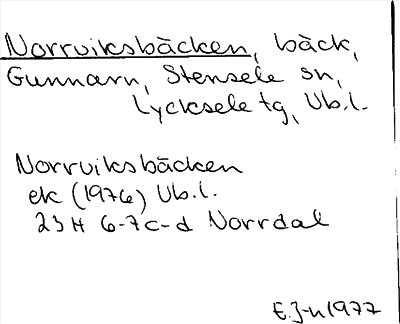 Norrviksbäcken, bäck,
Gunnarn, Stensele sn,
Lycksele tg, Vb.l.
Norrviksbäcken
ek (1976) Vb.l.
23H 6-7c-d Norrdal
E.J-n 1977